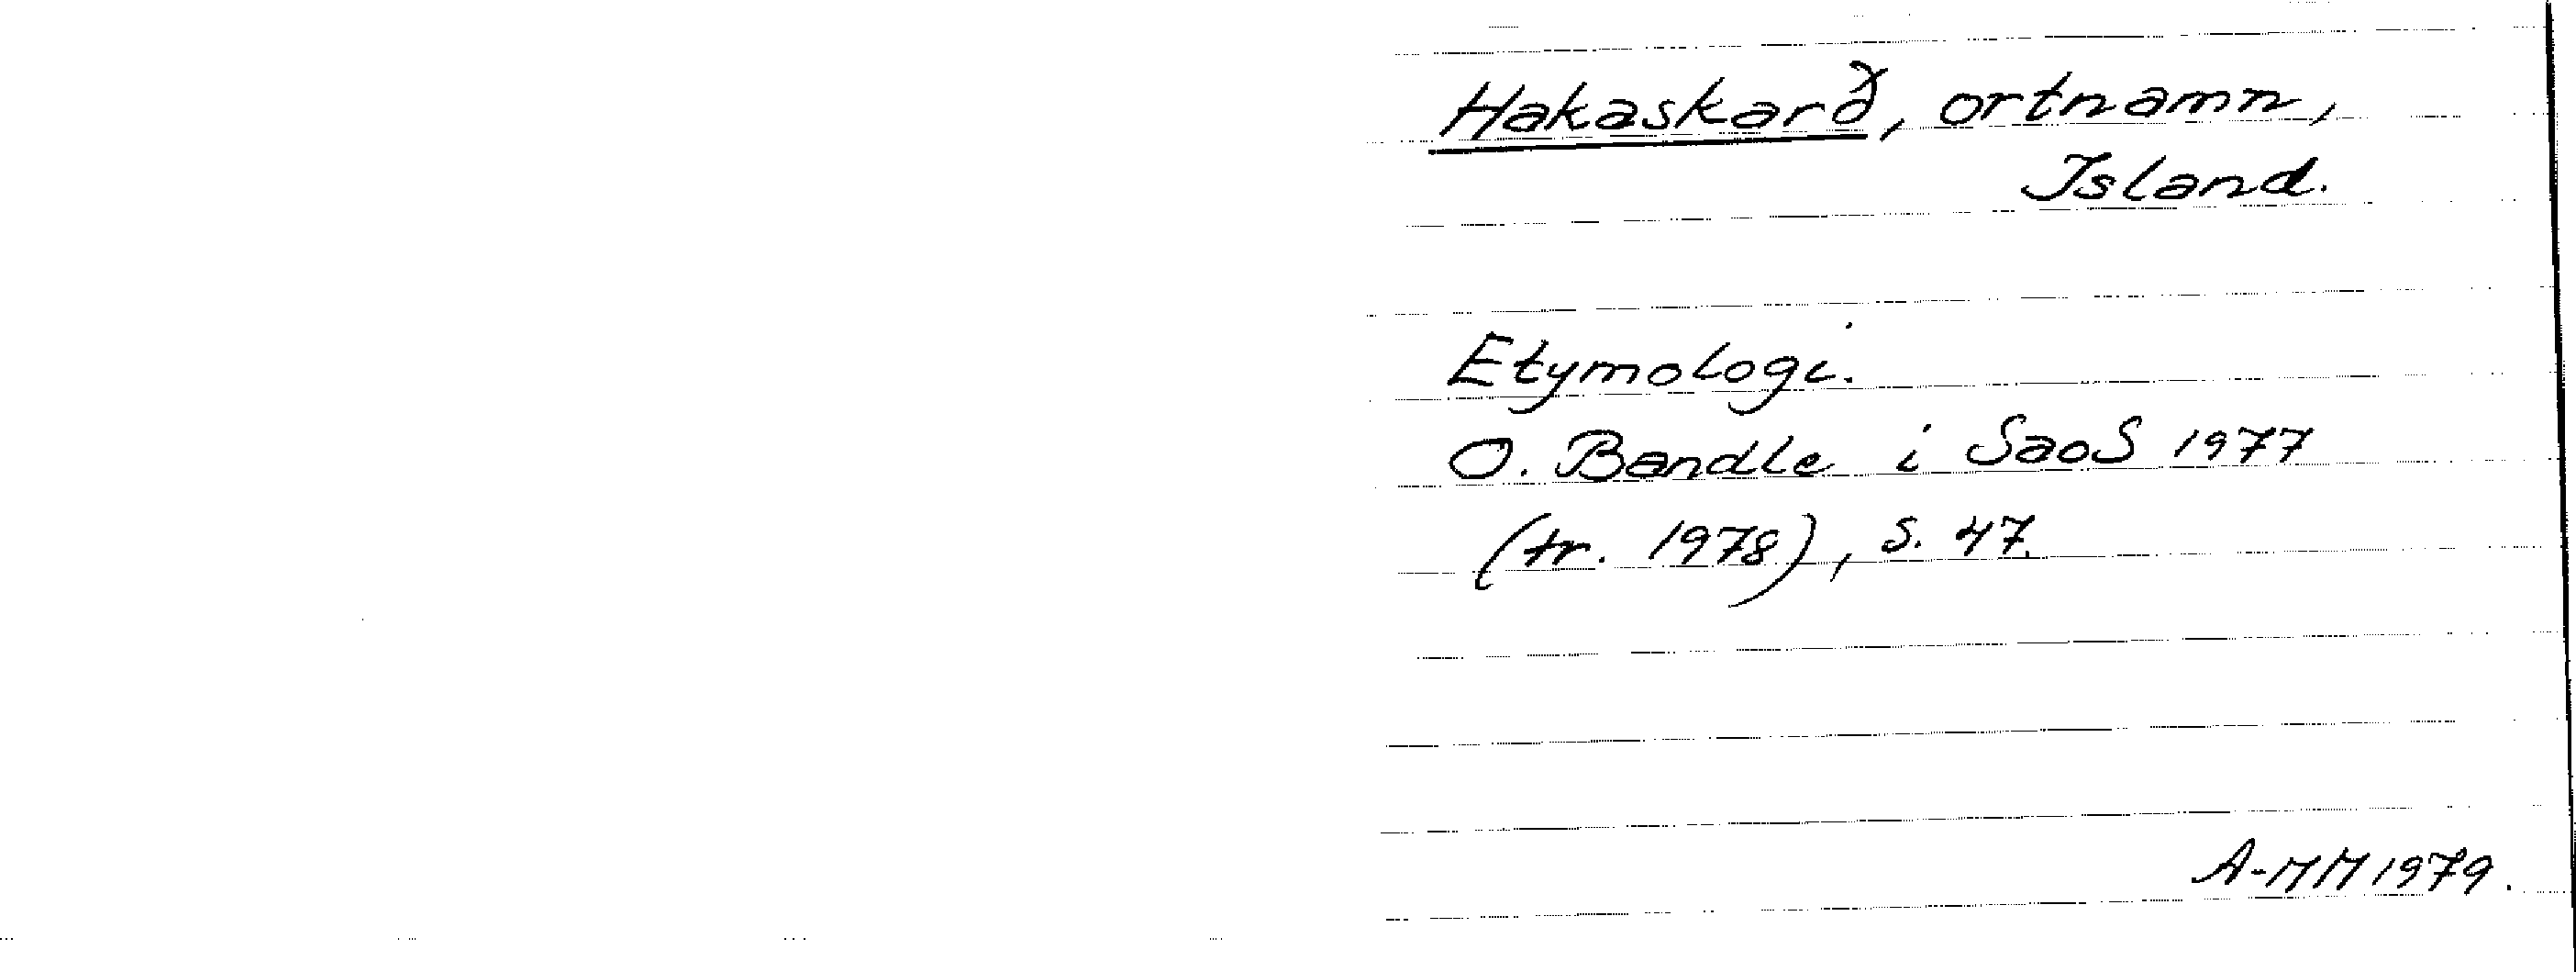 Hakaskarð, ortnamn,
Island.
Etymologi.
O. Bandle i SaoS 1977
(tr. 1978), s. 47.
A-MM 1979.